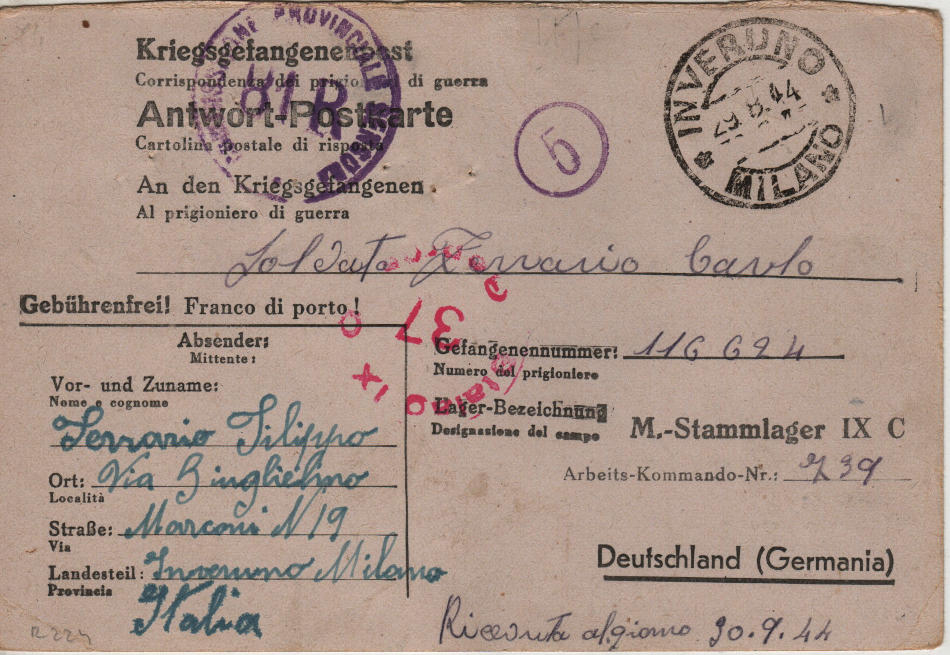 Kriegsgefangenenpost
Corrispondenza dei prigionieri di guerra
Antwort-Postkarte
Cartolina postale di risposta
An den Kriegsgefangenen
Al prigioniero di guerra
81 R
5
INVERUNO
29.8.44
MILANO
Soldato Ferrario Carlo
Gebührenfrei! Franco di porto!
37
Stalag IX C
Absender:
Mittente:
Vor- und Zuname:
Nome e cognome
Ferrario Filippo
Ort: Via Guglielmo
Località
Straße: Marconi N 19
Via
Landesteil: Inveruno Milano
Provincia
Italia
Gefangenennummer: 116 694
Numero del prigioniero
Lager-Bezeichnung
Designazione del campo
M.-Stammlager IX C
Arbeits-Kommando-Nr.: 739
Deutschland (Germania)
Ricevuta al giorno 30.9.44
R 224